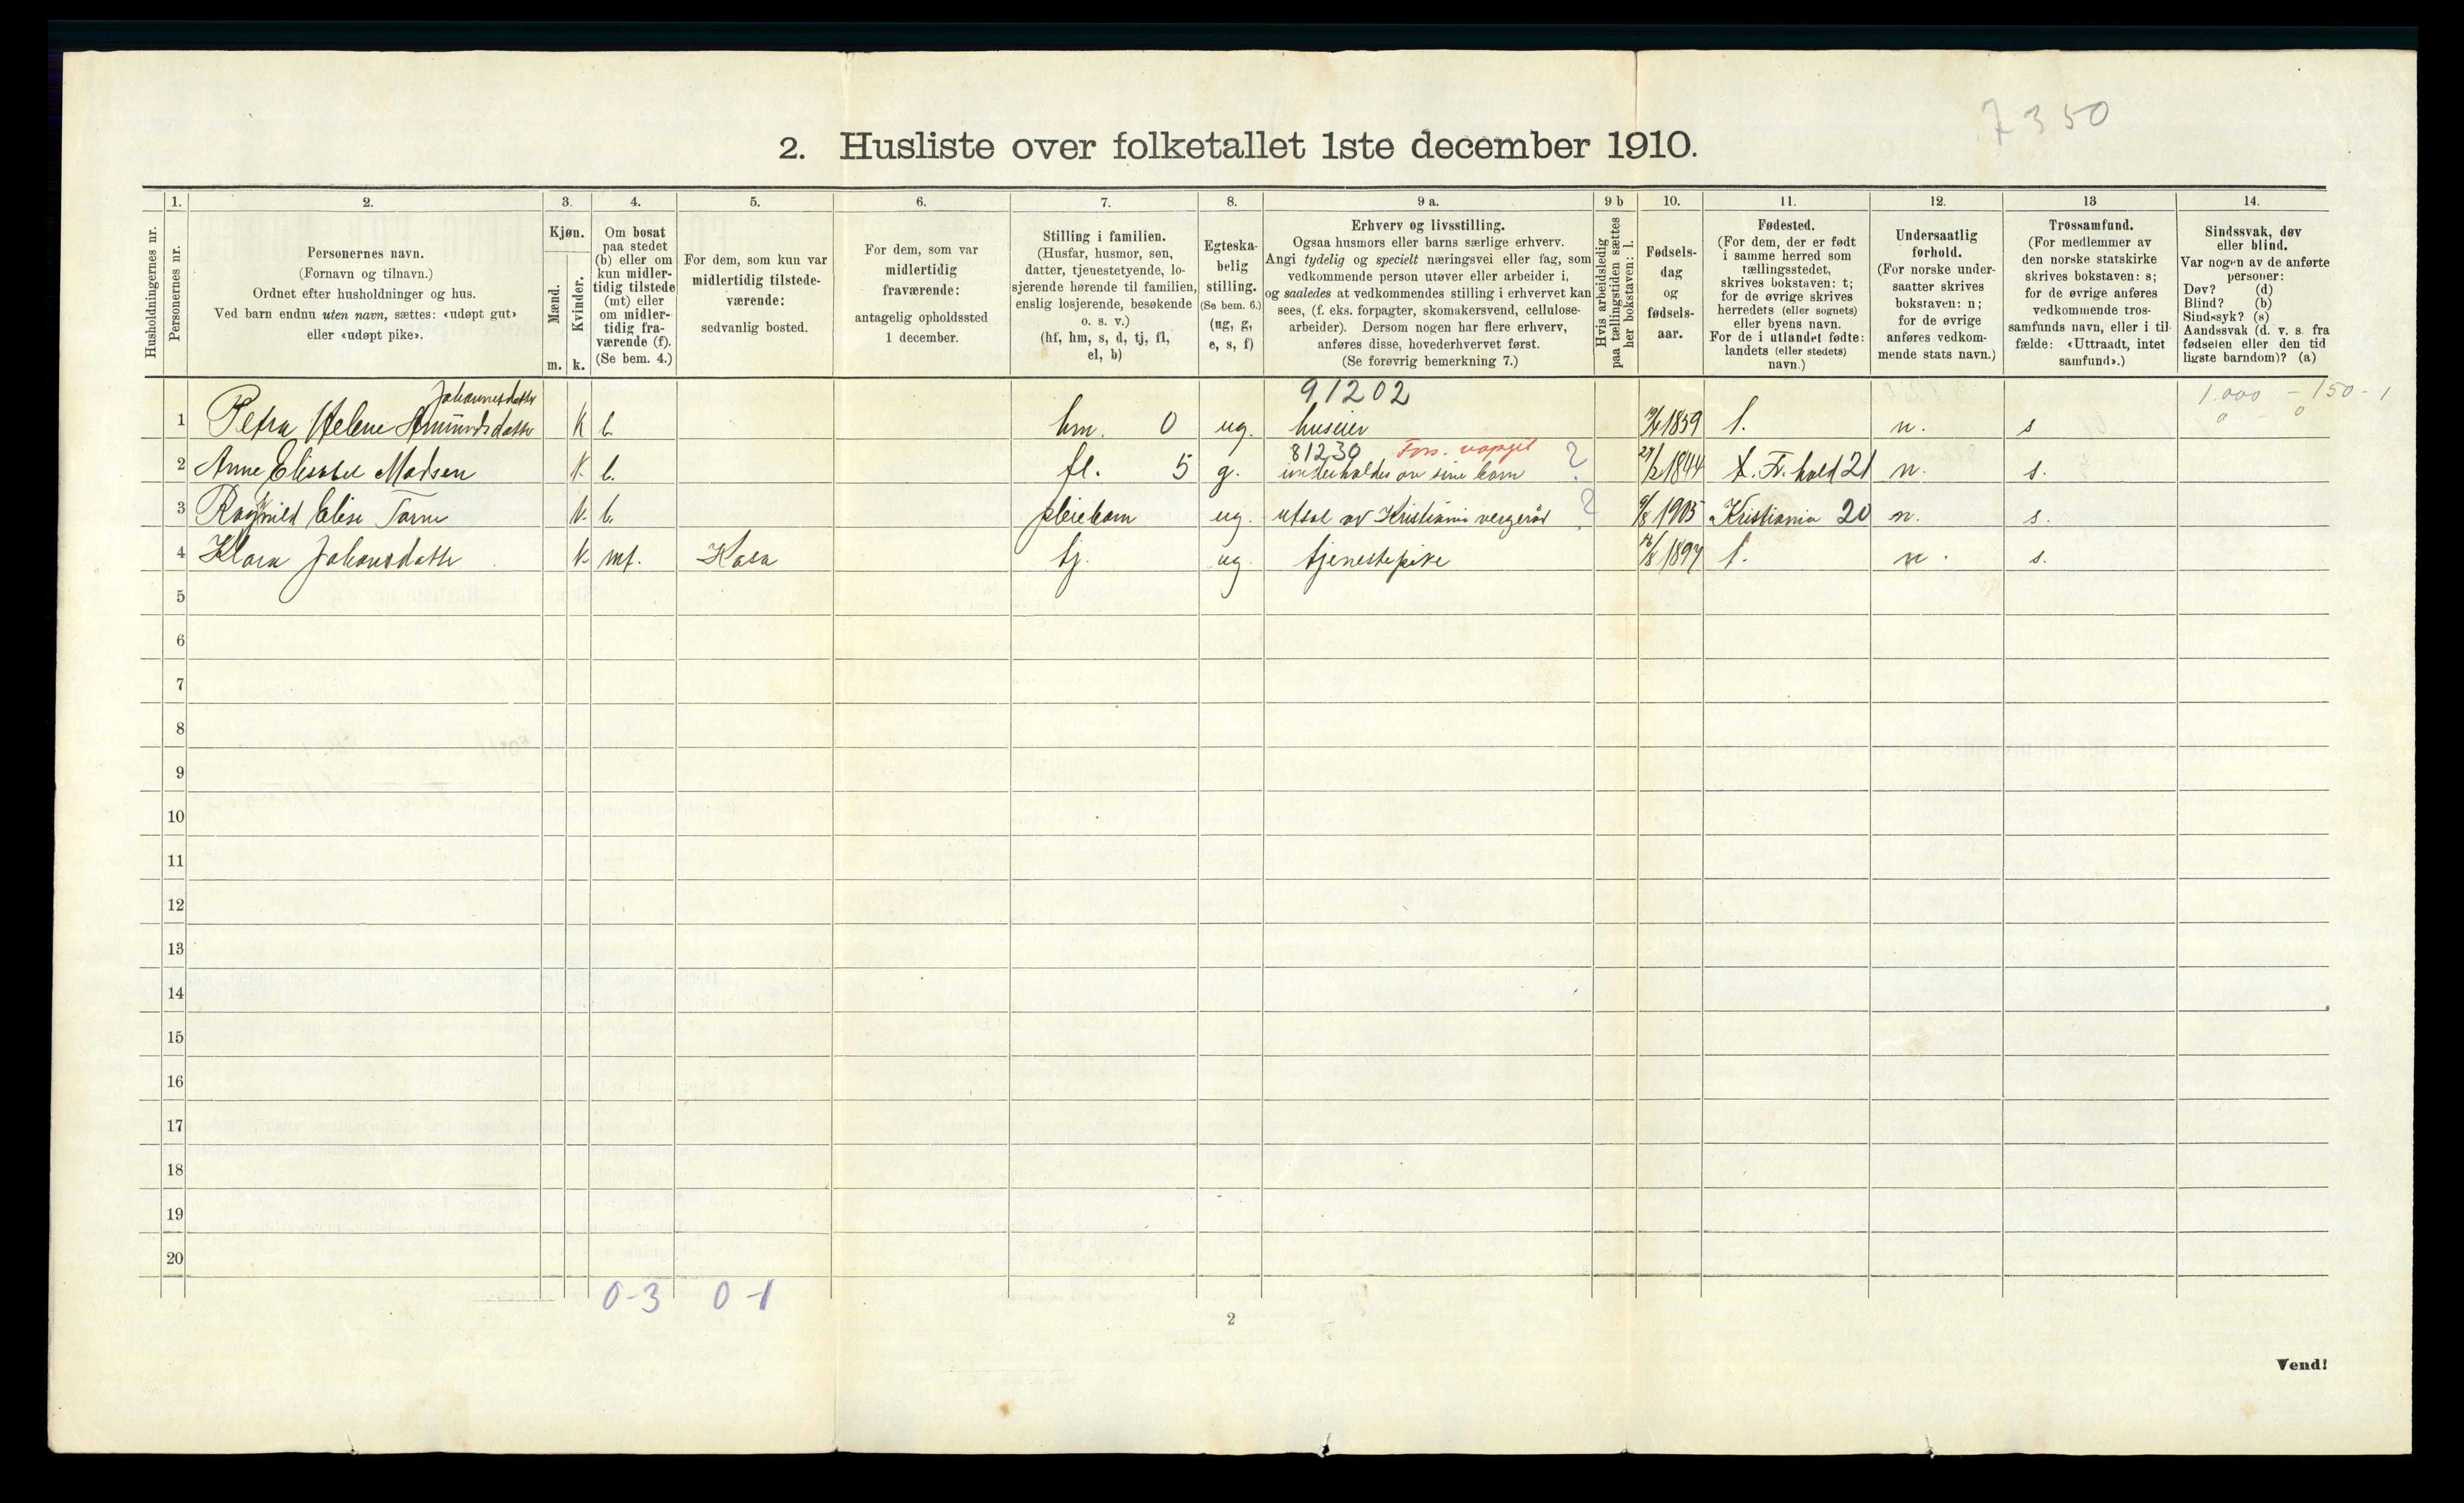 7350
2. Husliste over folketallet 1ste december 1910.
1. 2. 3. 4. 5. 6. 7. 8. 9 a. 9 b 10. 11. 12. 13 14.
Husholdningernes nr.
Personernes nr.
Personernes navn.
(Fornavn og tilnavn.)
Ordnet efter husholdninger og hus.
Ved barn endnu uten navn, sættes: «udøpt gut»
eller «udøpt pike».
Kjøn.
Mænd.
Kvinder.
m. k.
Om bosat
paa stedet
(b) eller om
kun midler-
tidig tilstede
(mt) eller
om midler-
tidig fra-
værende (f).
(Se bem. 4.)
For dem, som kun var
midlertidig tilstede-
værende:
sedvanlig bosted.
For dem, som var
midlertidig
fraværende:
antagelig opholdssted
1 december.
Stilling i familien.
(Husfar, husmor, søn,
datter, tjenestetyende, lo-
sjerende hørende til familien,
enslig losjerende, besøkende
o. s. v.)
(hf, hm, s, d, tj, fl,
el, b)
Egteska-
belig
stilling.
(Se bem. 6.)
(ug, g,
e, s, f)
Erhverv og livsstilling.
Ogsaa husmors eller barns særlige erhverv.
Angi tydelig og specielt næringsvei eller fag, som
vedkommende person utøver eller arbeider i,
og saaledes at vedkommendes stilling i erhvervet kan
sees, (f. eks. forpagter, skomakersvend, cellulose-
arbeider). Dersom nogen har flere erhverv,
anføres disse, hovederhvervet først.
(Se forøvrig bemerkning 7.)
Hvis arbeidsledig
paa tællingstiden sættes
her bokstaven: l.
Fødsels-
dag
og
fødsels-
aar.
Fødested.
(For dem, der er født
i samme herred som
tællingsstedet,
skrives bokstaven: t;
for de øvrige skrives
herredets (eller sognets)
eller byens navn.
For de i utlandet fødte:
landets (eller stedets)
navn.)
Undersaatlig
forhold.
(For norske under-
saatter skrives
bokstaven: n;
for de øvrige
anføres vedkom-
mende stats navn.)
Trossamfund.
(For medlemmer av
den norske statskirke
skrives bokstaven: s;
for de øvrige anføres
vedkommende tros-
samfunds navn, eller i til-
fælde: «Uttraadt, intet
samfund».)
Sindssvak, døv
eller blind.
Var nogen av de anførte
personer:
Døv? (d)
Blind? (b)
Sindssyk? (s)
Aandssvak (d. v. s. fra
fødselen eller den tid
ligste barndom)? (a)
Johannesdatter 91202 1.000 - 150 - 1
1 Petra Helene K b. hm. 0 ug. huseier 1859 t. n. s 0 - 0
81230 Fors. ?
2 Anne Elisabet Madsen K. b. fl. 5 g. underholdes av sine barn 1844 t. Fr. hald 21 n. s.
3 Ragnhild Elise K. b. pleiebarn ug. utsat av Kristiania vergeråd ? 1905 Kristiania 20 n. s.
4 Klara Johansdatter K. mt. Kasa tj. ug. tjenestepike 1897 t. n. s.
5
6
7
8
9
10
11
12
13
14
15
16
17
18
19
20
0-3 0-1
2
Vend!